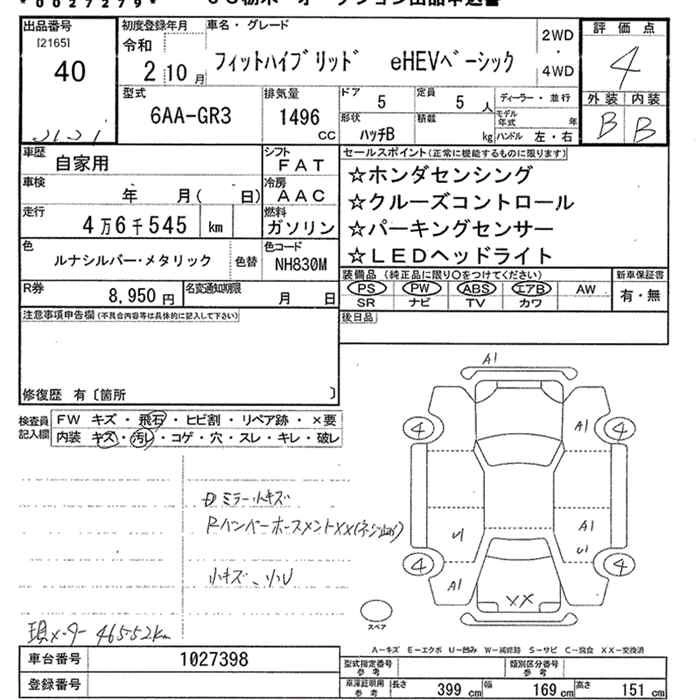 *0027279*
出品番号
[2165]
40
初度登録年月
令和
2 10 月
車名・グレード
フィットハイブリッド eHEVベーシック
2WD
・
4WD
評価点
4
外装 内装
B B
型式
6AA-GR3
排気量
1496
cc
ドア 5
定員 5 人
ディーラー・並行
形状
ハッチB
積載
kg
モデル年式 年
ハンドル 左・右
車歴
自家用
シフト
FAT
セールスポイント(正常に機能するものに限ります)
☆ホンダセンシング
☆クルーズコントロール
☆パーキングセンサー
☆LEDヘッドライト
車検
年 月( 日)
冷房
AAC
走行
4万6千545 km
燃料
ガソリン
色
ルナシルバー・メタリック
色替
色コード
NH830M
装備品(純正品に限り○をつけてください)
PS PW ABS エアB AW
SR ナビ TV カワ
新車保証書
有・無
R券
8,950 円
名変通知期限
月 日
後日品
注意事項申告欄(不具合内容等は具体的に記入して下さい)
修復歴 有〔箇所 〕
検査員記入欄
FW キズ・飛石・ヒビ割・リペア跡・×要
内装 キズ・汚レ・コゲ・穴・スレ・キレ・破レ
ミラー小キズ
小キズ、小U
現メーター 46552km
A1
4
A1
4
U1
A1
U1
4
A1
4
XX
スペア
A−キズ E−エクボ U−凹み W−補修跡 S−サビ C−腐食 XX−交換済
車台番号
1027398
登録番号
型式指定番号
参考
類別区分番号
参考
車庫証明用
参考
長さ 399 cm
幅 169 cm
高さ 151 cm